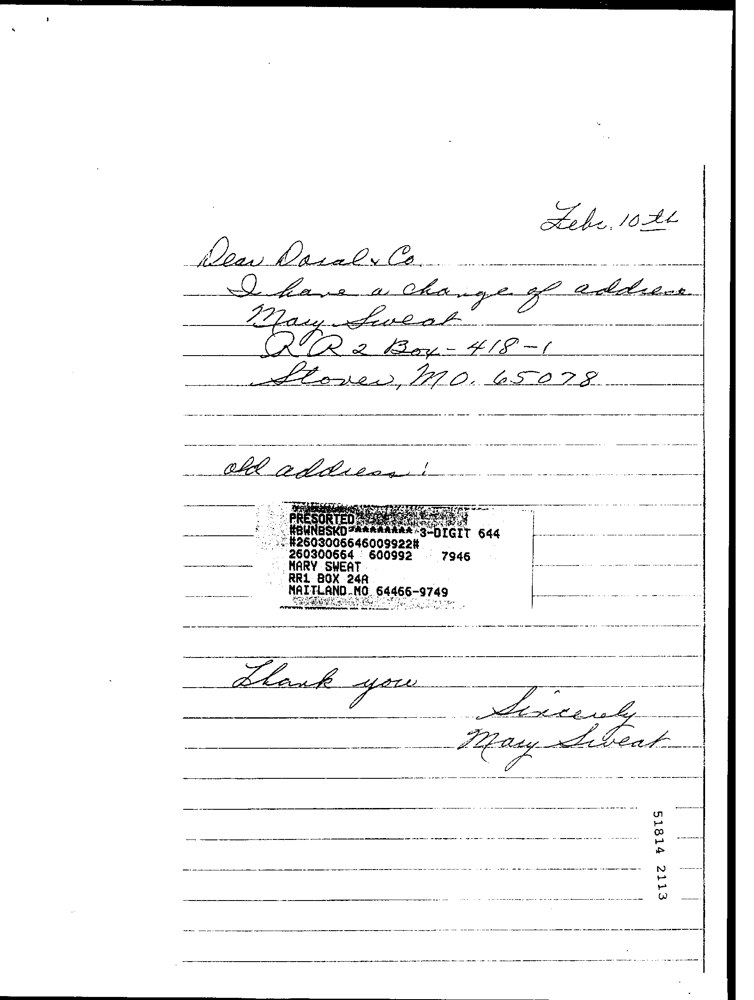 Febr. 10th
Dear Doral & Co.
I have a change of address
Mary Sweat
RR 2 Box - 418-1
Stover, MO. 65078
old address:
PRESORTED
#BWNBSKD *********3-DIGIT 644
#2603006646009922#
260300664 600992 7946
MARY SWEAT
RR1 BOX 24A
MAITLAND MO 64466-9749
Thank you
Sincerely
Mary Sweat
51814 2113